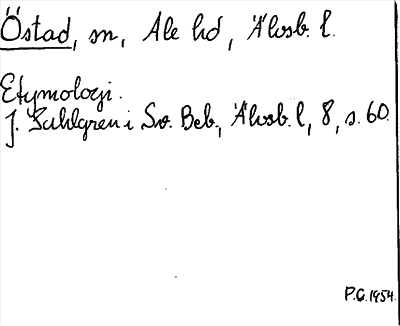 Östad, sn, Ale hd, Älvsb. l.
Etymologi.
J. Sahlgren i Sv. Beb., Älvsb. l, 8, s. 60.
P.G. 1954.